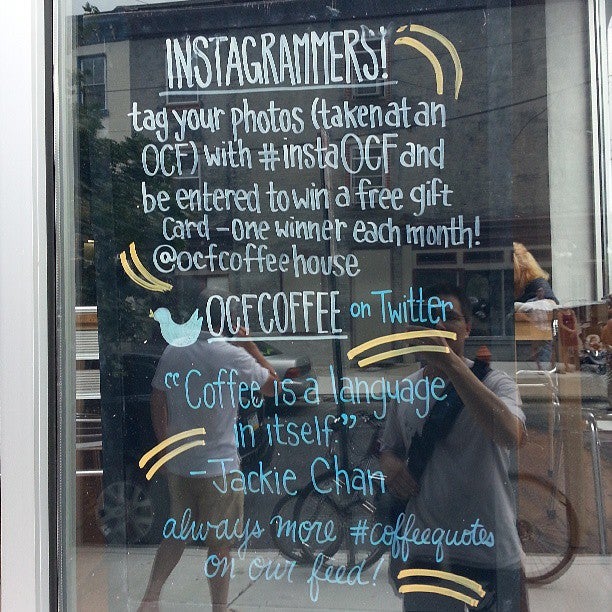 INSTAGRAMMERS!
tag your photos (taken at an
OCF) with #instaOCF and
be entered to win a free gift
card - one winner each month!
@ocfcoffeehouse
OCFCOFFEE on Twitter
"Coffee is a language
in itself"
- Jackie Chan
always more #coffeequotes
on our feed!